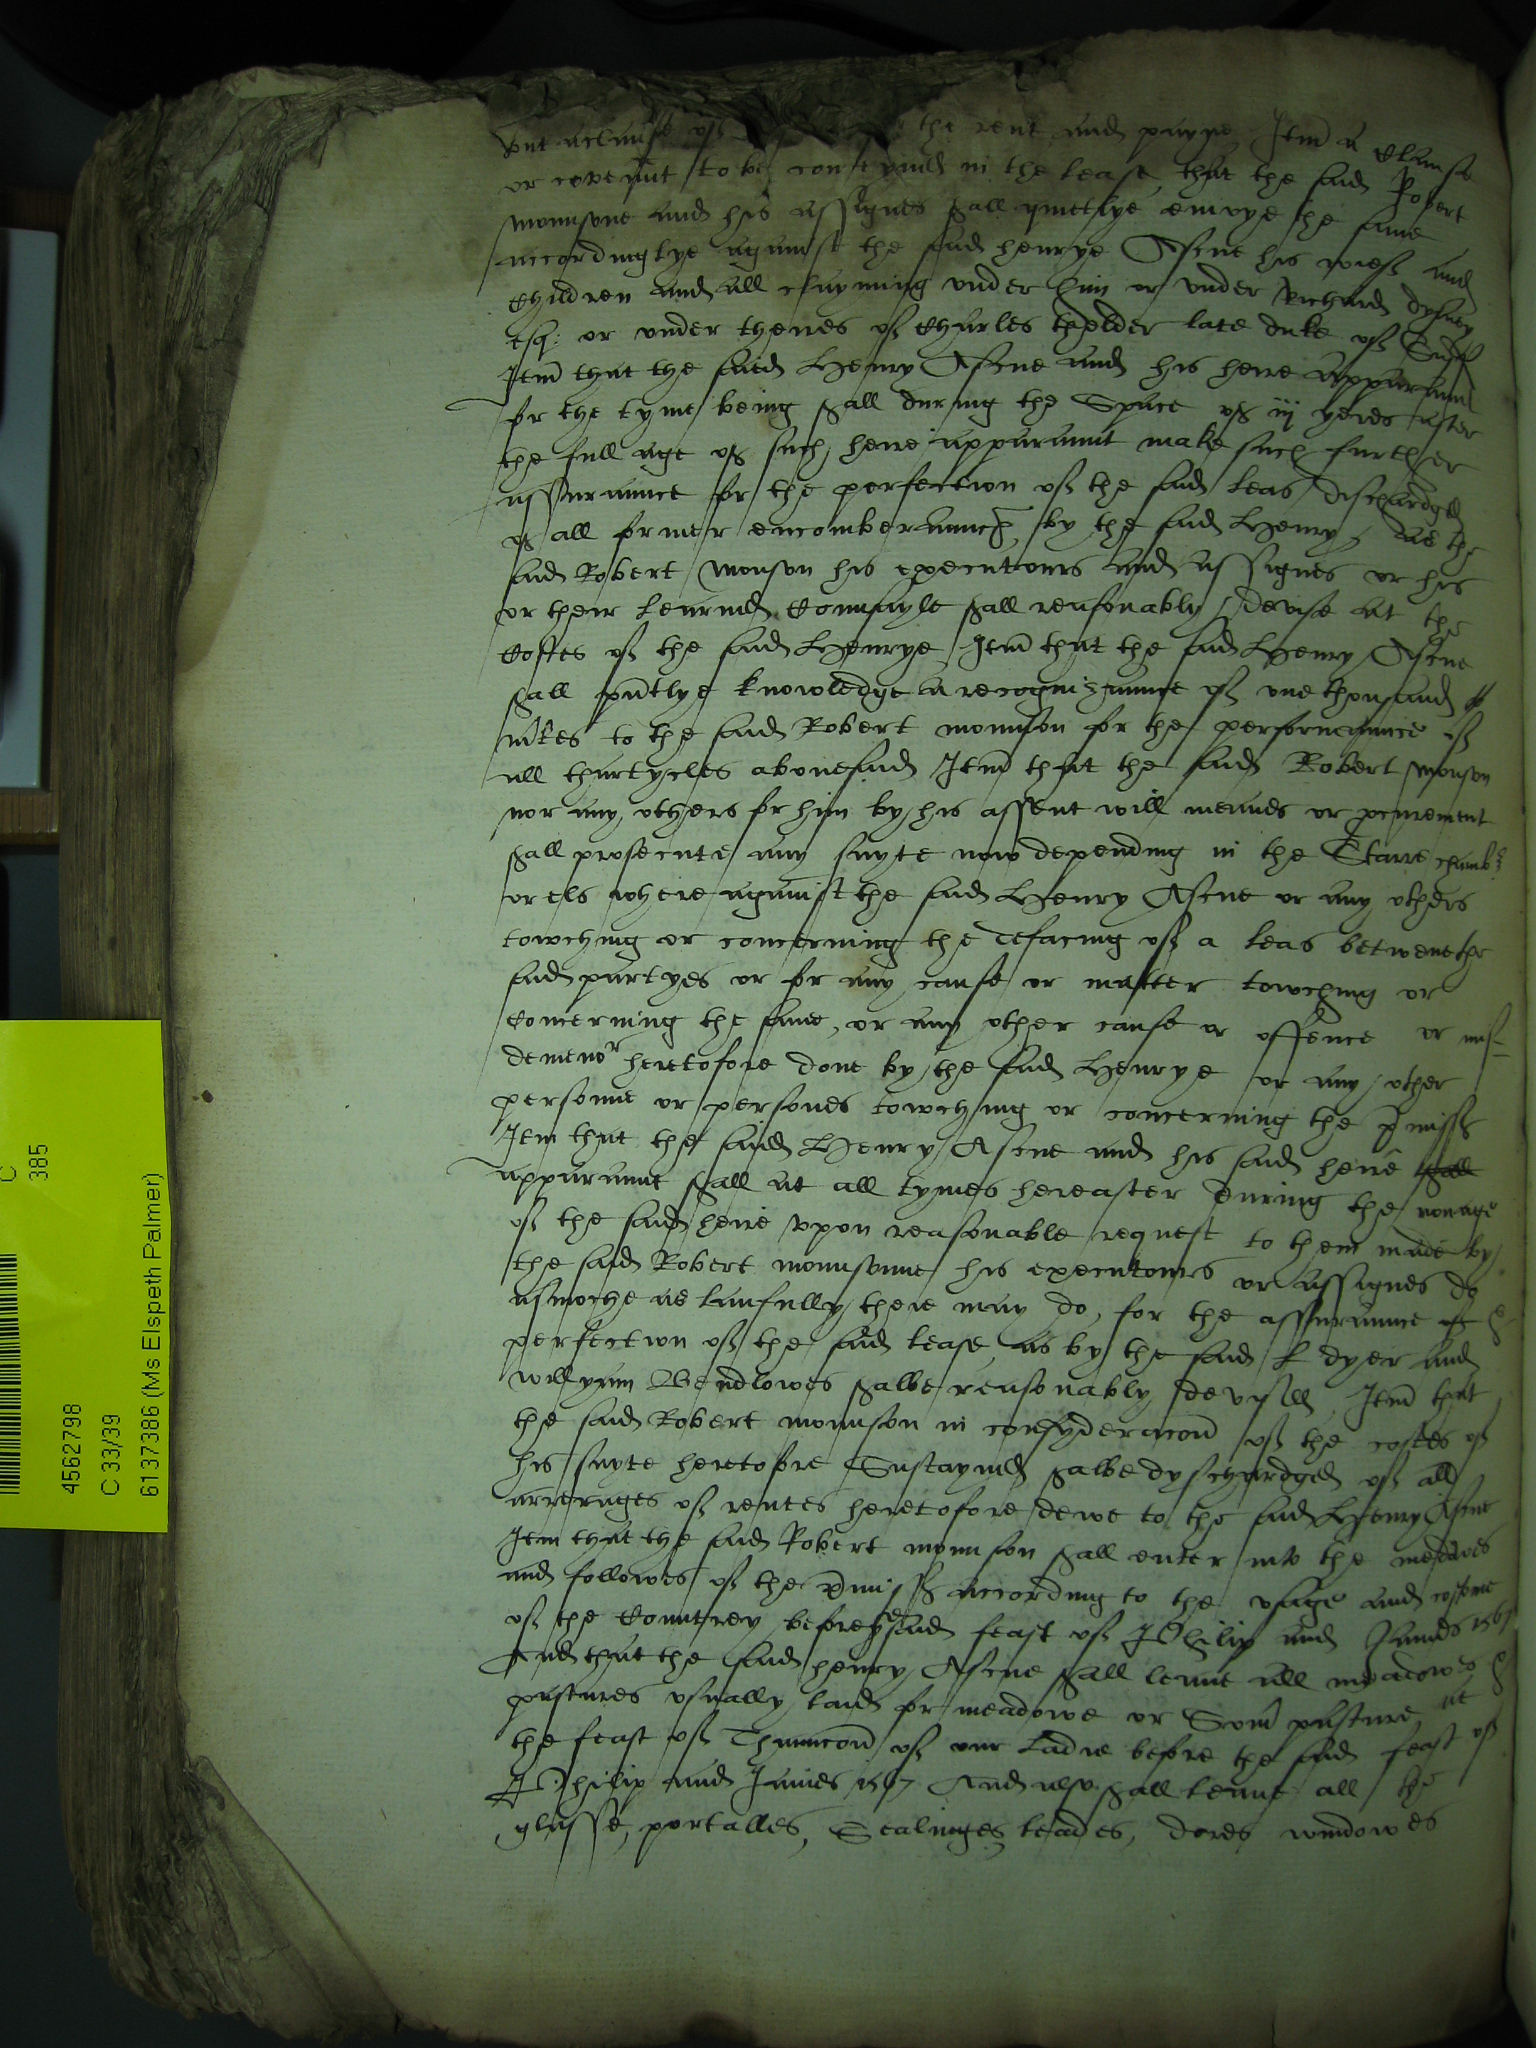 but a clause of the rent and payne Itm̃ a Clause
or covenãnt to be conteyned in the lease that the said Robert
mounsone and his assignes shall quietlye enioye the same
accordinglye against the said henrye Ascue his wief and
Children and all clayming under him or under Richard dysney
esq: or under theires of Charles thelder late duke of Suff
Itm̃ that the saied Henry Ascue and his heire apparaunt
for the tyme being shall during the Space of iij yeres after
the full age of such heire apparaunt make such further
assuraunce for the perfection of the said leas dischardged
of all former encomberaunces by the said Henry, As the
said Robert Monson his executours and assignes or his
or their learned Counsayle shall reasonably devise At the
Costes of the said Henrye Itm̃ that the said Henry Ascue
shall p̃ntlye knowledge a recognizaunce of one thousand
m̃kes to the said Robert mounson for the performaunce of
all tharticles abouesaid Itm̃ that the said Robert Monson
nor any others for him by his assent will meanes or procurement
shall prosecute any suyte now depending in the Starre chamb
or els where against the said Henry Ascue or any others
towching or concerning the defacing of a leas betwene the
said partyes or for any cause or matter towching or
Concerning the same, or any other cause or offence or mis-
demenor heretofore done by the said Henrye or any other
personne or persones towching or concerning the p̃misses
Itm that the saied Henry Ascue and his said heire shall
apparaunt shall at all tymes hereafter during the nonage
of the said heire upon reasonable request to them made by
the said Robert mounsonne his executours or assignes do
asmoche as laufully there may do, for the assuraunce of
perfection of the said lease as by the said L dyer and
Willyam Bendlowes shalbe reasonably devised Itm̃ that
the said Robert mounson in consyderacon̄ of the costes of
his suyte heretofore Sustayned shalbe dyschardged of all
arrerages of rentes heretofore dewe to the said Henry Ascue
Itm that the said Robert mounson shall enter into the meadowes
and followes of the p̃misses according to the usage and costome
of the Countrey before the said feast of Philip and James 1567
And that the said henry Ascue shall leaue all meadowes
pastures usually laid for meadowe or Som̃ pasture at
the feast of Thanncon̄ of our Ladie before the said feast of
Philip and James 1567 And also shall leaue all the
glasse, portalles, Sealinges, leades, dores windowes
C
385
4562798
C 33/39
6137386 (Ms Elspeth Palmer)